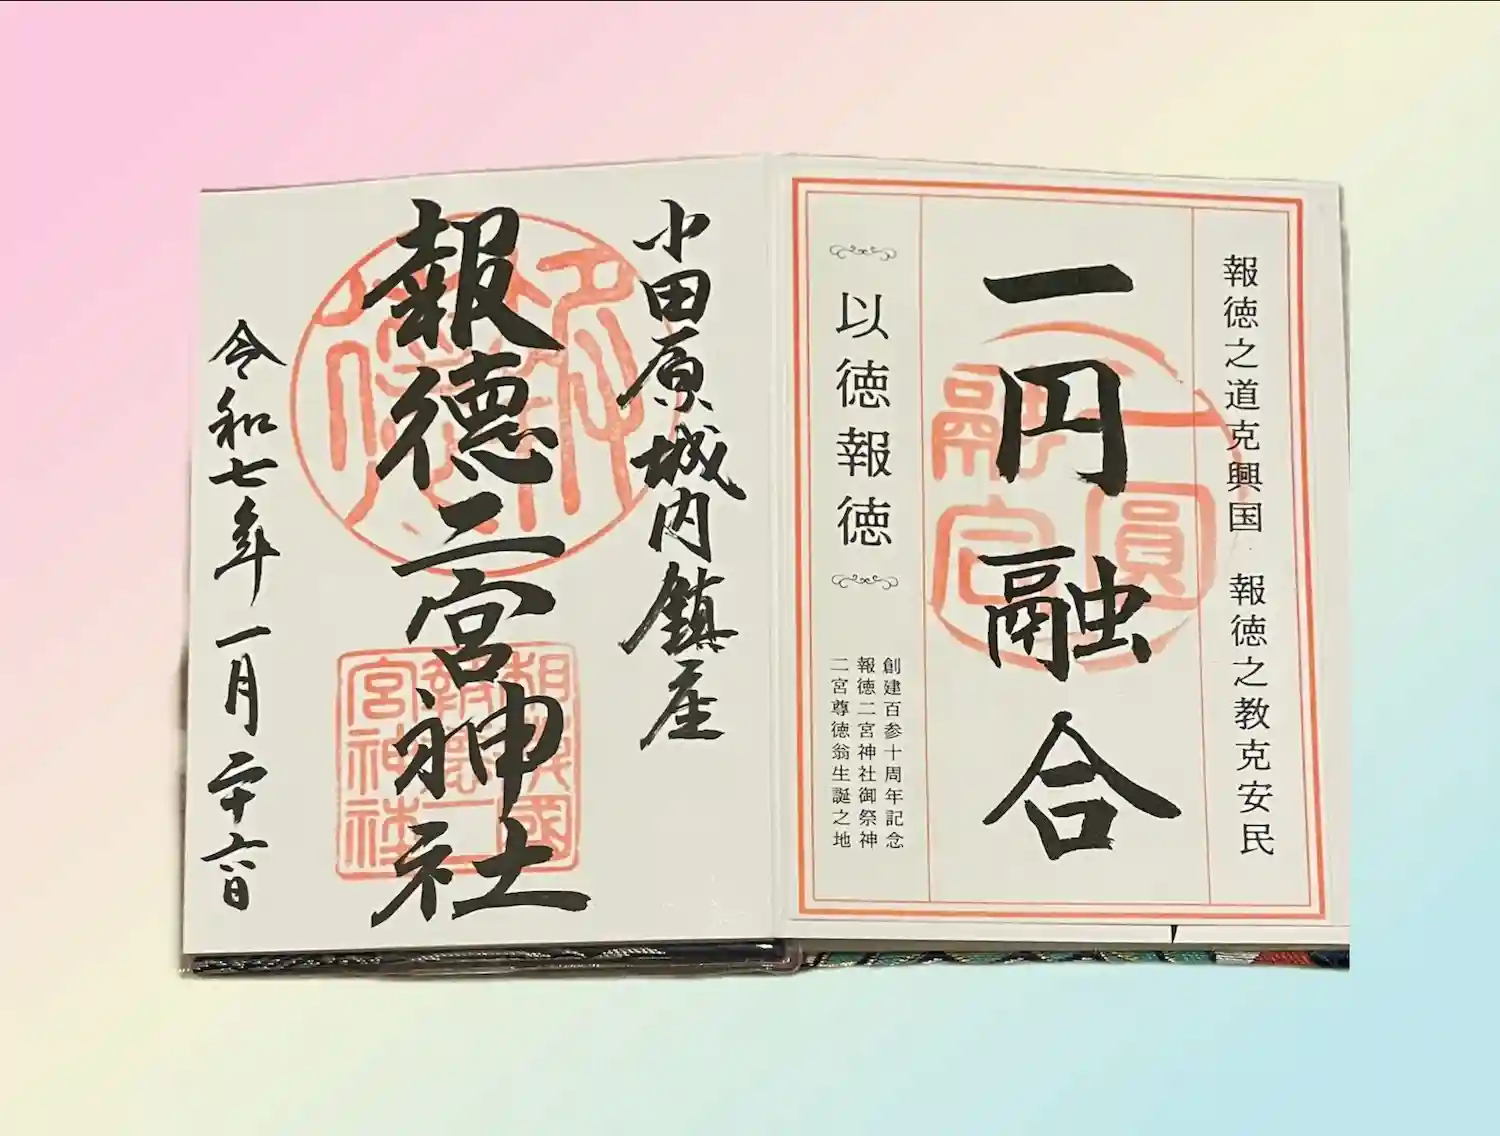 報徳之道克興国 報徳之教克安民
一円融合
一圓融合
以徳報徳
創建百参十周年記念
報徳二宮神社御祭神
二宮尊徳翁生誕之地
小田原城内鎮座
報徳二宮神社
相模國
報徳二
宮神社
令和七年一月二十六日